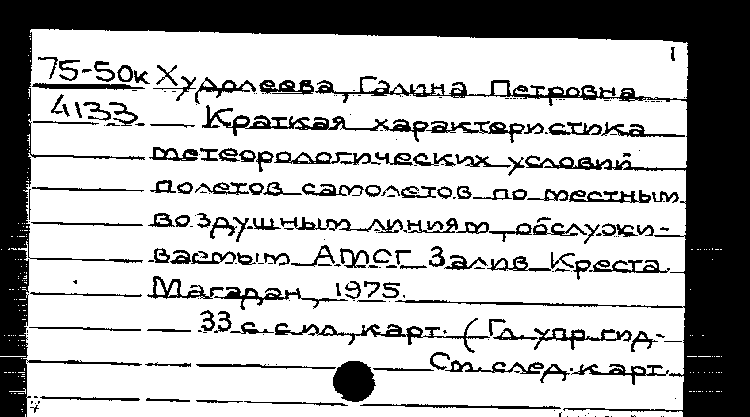 1
75-50к Худолеева, Галина Петровна
4133 Краткая характеристика
метеорологических условий
полетов самолетов по местным
воздушным линиям, обслужи-
ваемым АМСГ Залив Креста.
Магадан, 1975.
33 с. с ил., карт. (Гл. упр. гид-
См. след. карт.